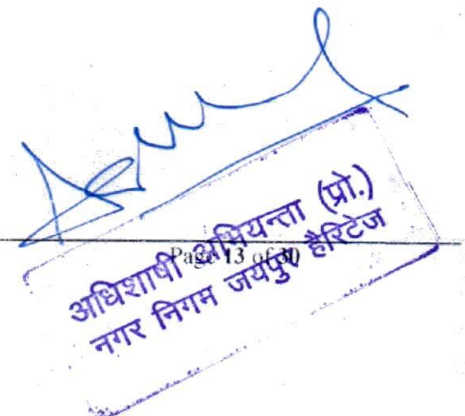 Page 13 of 30
अधिशाषी अभियन्ता (प्रो.)
नगर निगम जयपुर हैरिटेज